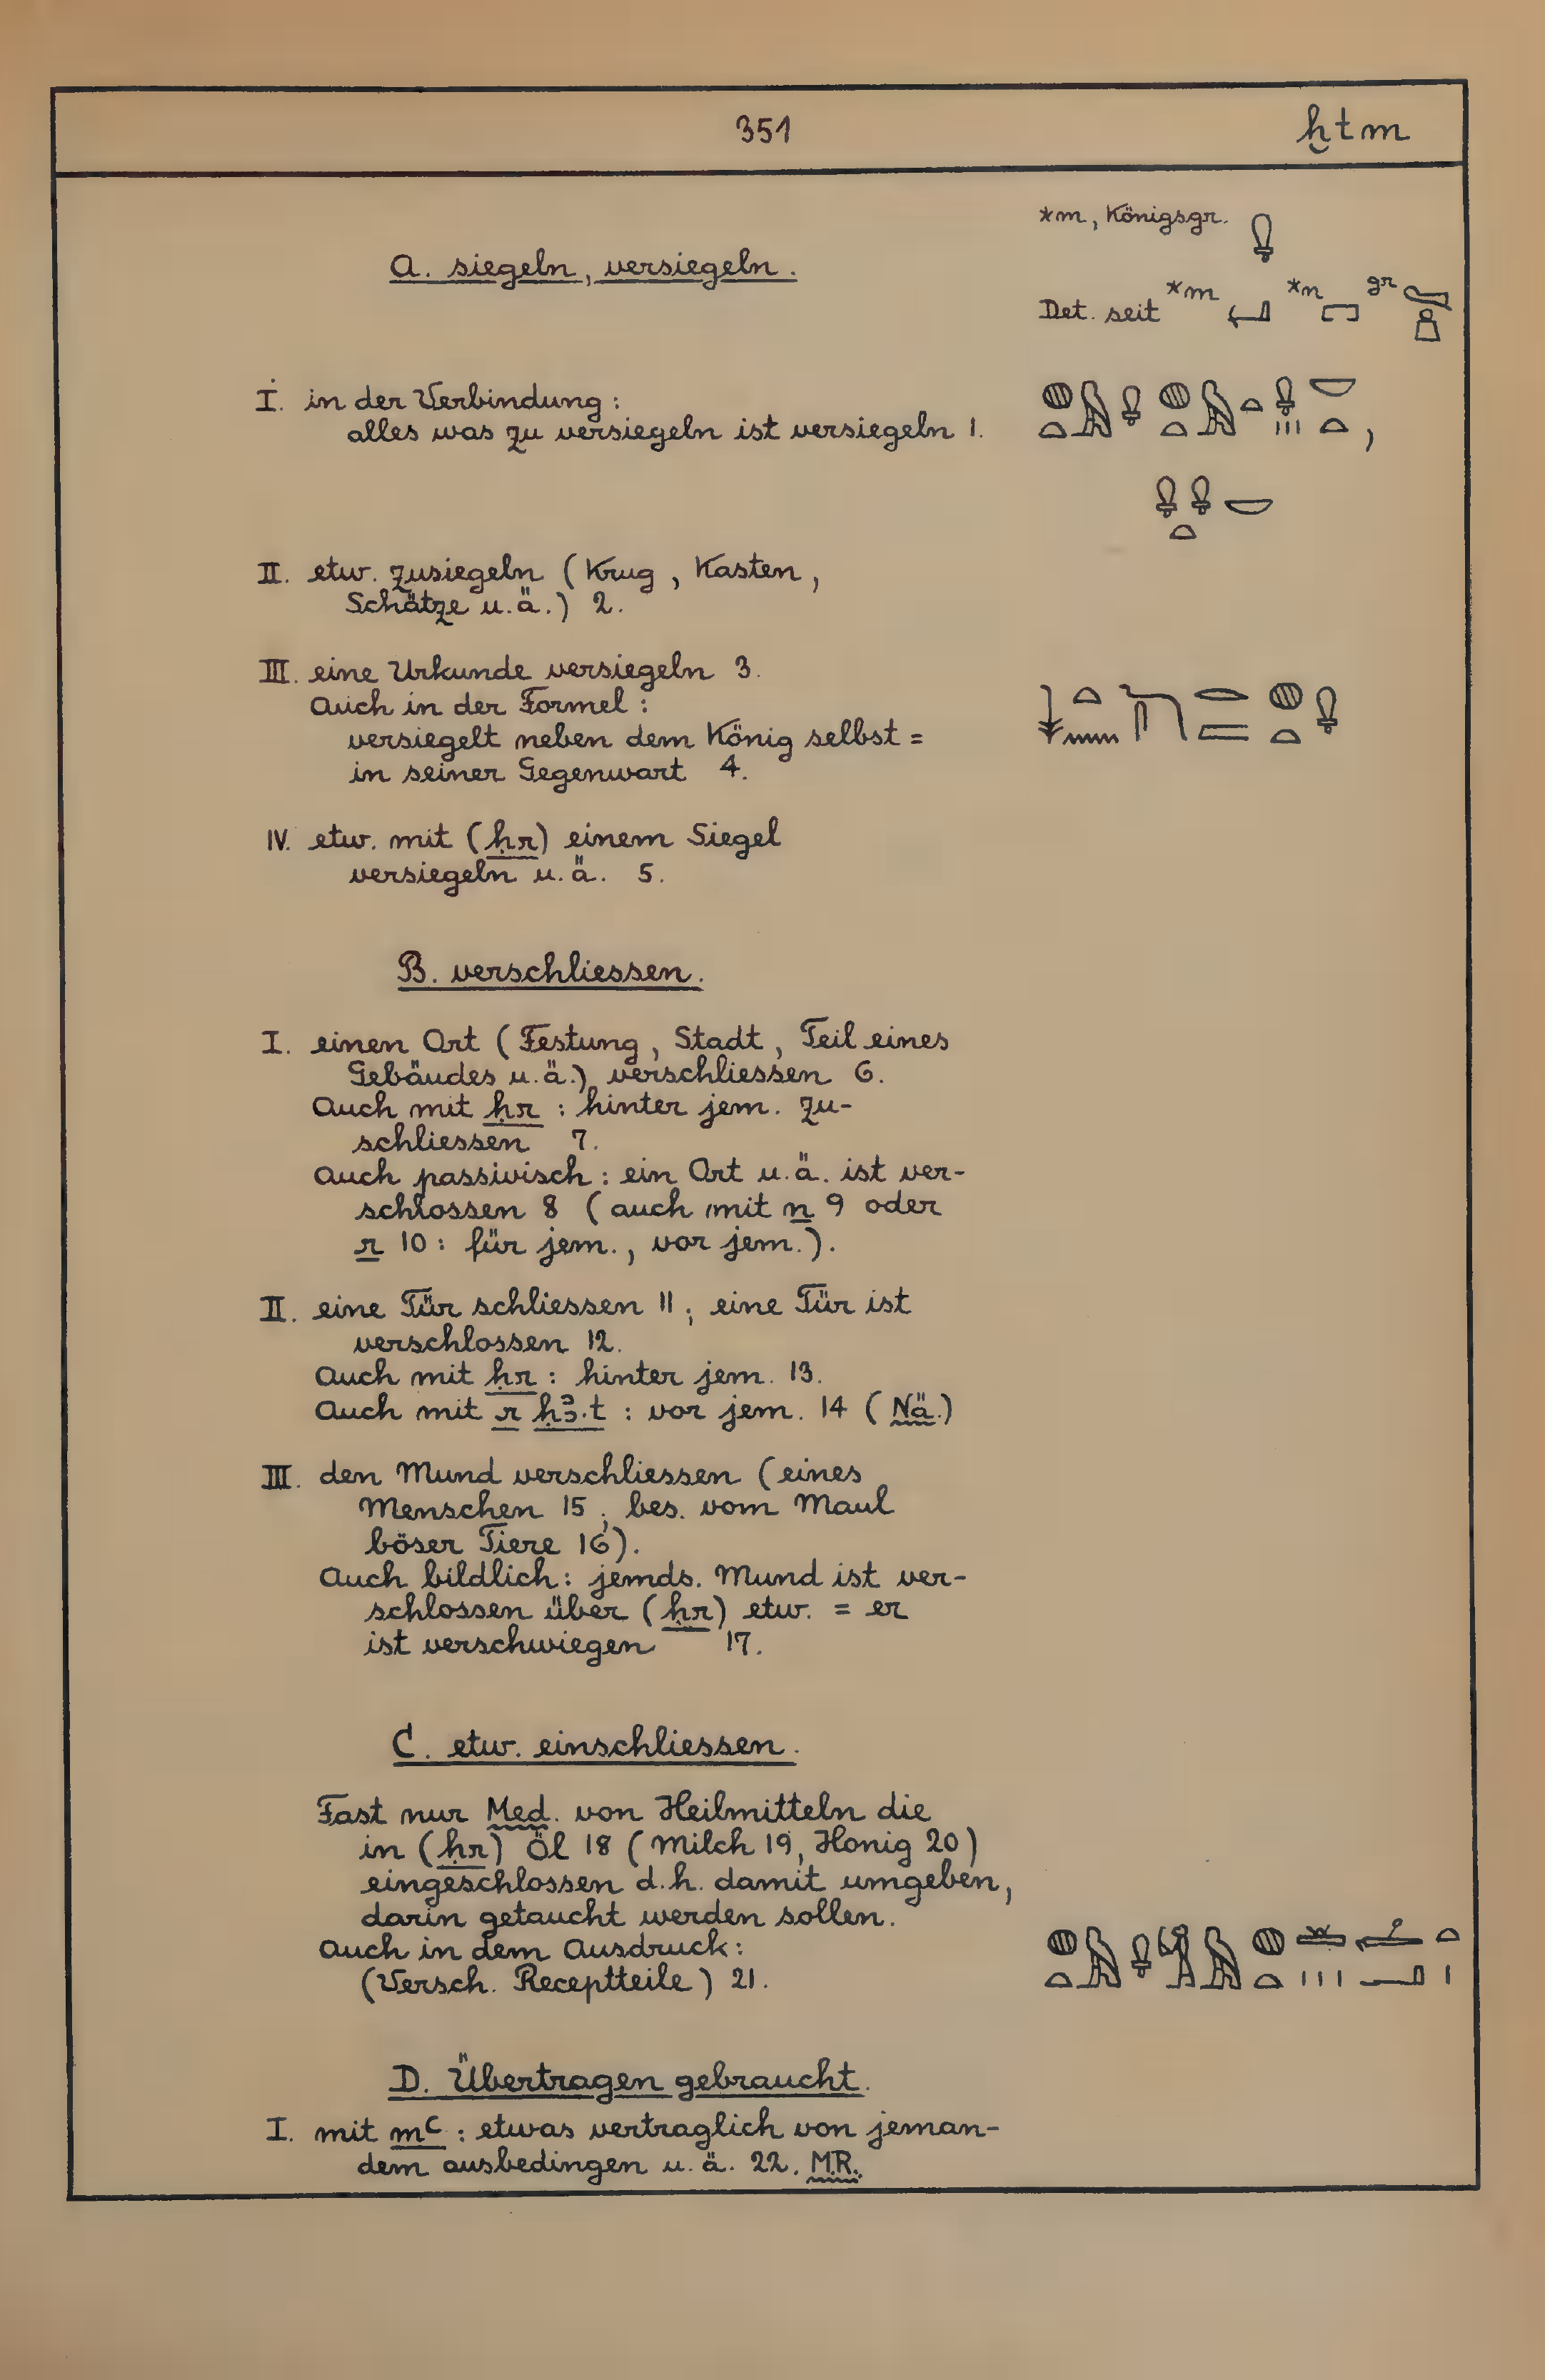 351
ḫtm
*m, Königsgr.
A. siegeln, versiegeln.
Det. seit *m *n gr
I. in der Verbindung:
alles was zu versiegeln ist versiegeln 1.
II. etw. zusiegeln (Krug, Kasten,
Schätze u.ä.) 2.
III. eine Urkunde versiegeln 3.
Auch in der Formel:
versiegelt neben dem König selbst =
in seiner Gegenwart 4.
IV. etw. mit (ḥr) einem Siegel
versiegeln u.ä. 5.
B. verschliessen.
I. einen Ort (Festung, Stadt, Teil eines
Gebäudes u.ä.) verschliessen 6.
Auch mit ḥr : hinter jem. zu-
schliessen 7.
Auch passivisch : ein Ort u.ä. ist ver-
schlossen 8 (auch mit n 9 oder
r 10 : für jem., vor jem.).
II. eine Tür schliessen 11; eine Tür ist
verschlossen 12.
Auch mit ḥr : hinter jem. 13.
Auch mit r ḥꜣ.t : vor jem. 14 (Nä.)
III. den Mund verschliessen (eines
Menschen 15; bes. vom Maul
böser Tiere 16).
Auch bildlich: jemds. Mund ist ver-
schlossen über (ḥr) etw. = er
ist verschwiegen 17.
C. etw. einschliessen.
Fast nur Med. von Heilmitteln die
in (ḥr) Öl 18 (Milch 19, Honig 20)
eingeschlossen d.h. damit umgeben,
darin getaucht werden sollen.
Auch in dem Ausdruck:
(Versch. Receptteile) 21.
D. Übertragen gebraucht.
I. mit mꜥ : etwas vertraglich von jeman-
dem ausbedingen u.ä. 22. M.R.